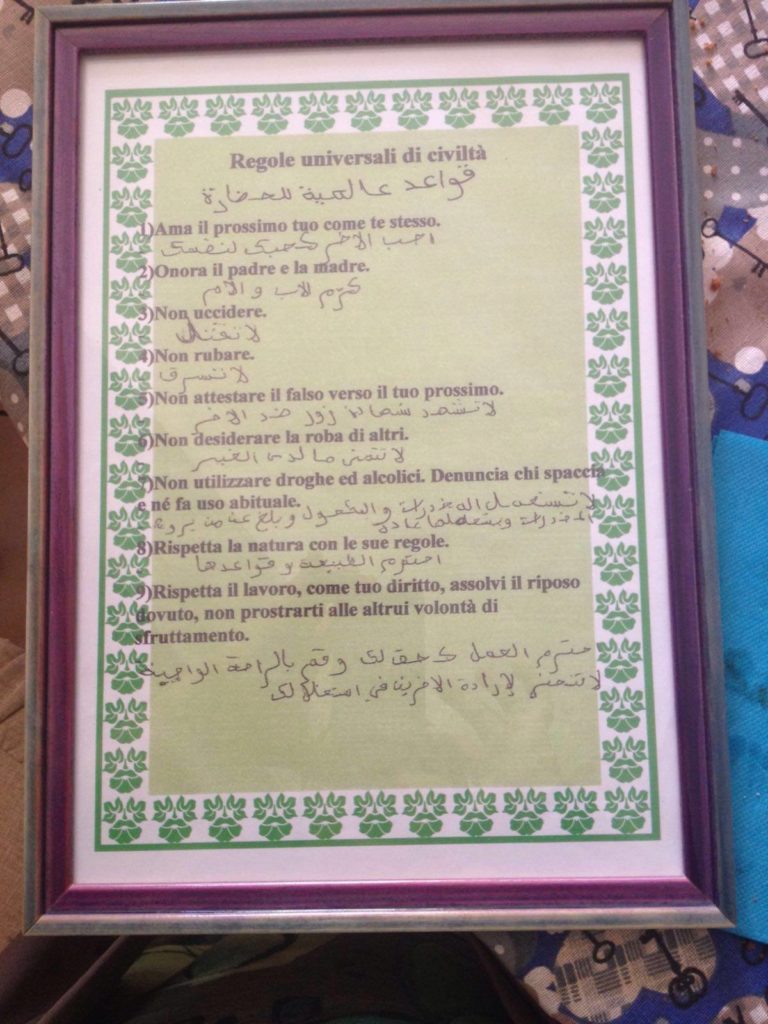 Regole universali di civiltà
قواعد عالمية للحضارة
1)Ama il prossimo tuo come te stesso.
احب الاخر كحبك لنفسك
2)Onora il padre e la madre.
كرّم للاب و الام
3)Non uccidere.
لا تقتل
4)Non rubare.
لا تسرق
5)Non attestare il falso verso il tuo prossimo.
لا تشهد شهادة زور ضد الاخر
6)Non desiderare la roba di altri.
لا تتمنى ما لدى الغير
7)Non utilizzare droghe ed alcolici. Denuncia chi spaccia
e né fa uso abituale.
لا تستعمل المخدرات و الكحول و بلغ عن من يروج
المخدرات ويستعملها عادة
8)Rispetta la natura con le sue regole.
احترم الطبيعة و قواعدها
9)Rispetta il lavoro, come tuo diritto, assolvi il riposo
dovuto, non prostrarti alle altrui volontà di
sfruttamento.
احترم العمل كحق لك و قم بالراحة الواجبة
لا تنحني لإرادة الاخرين في استغلالك